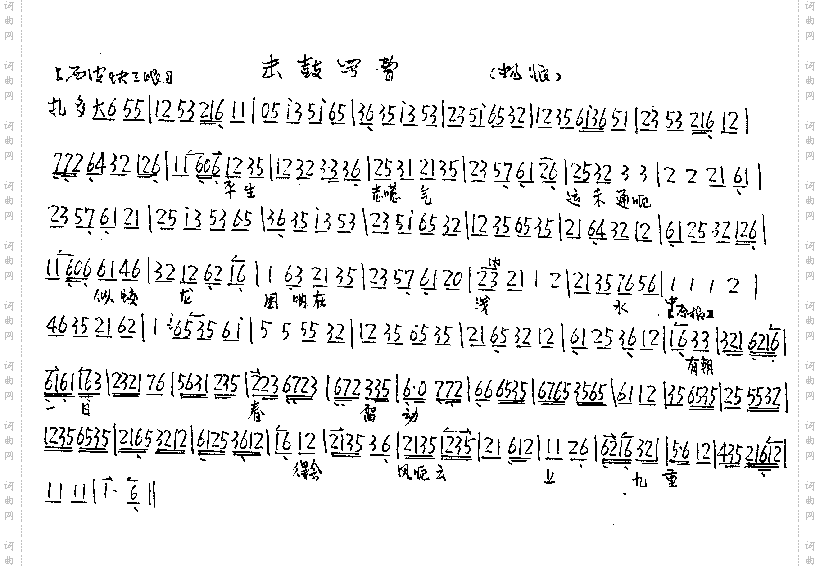 击鼓骂曹
扎多大6 55|12 53 216 11|05 i3 5i 65|36 35 i3 53|23 5i 65 32|12 35 6i36 51|23 53 216 12|
7772 64 32 126|11 606 12 35|12 32 33 36|25 31 21 35|23 57 61 26|25 32 3 3|2 2 21 61|
平生 志 气 运未通呃
23 57 61 21|25 i3 53 65|36 35 i3 53|23 5i 65 32|12 35 65 35|21 64 32 12|61 25 32 126|
11 606 61 46|32 12 62 16|1 63 21 35|23 57 61 20|23 21 1 2|21 35 76 56|1 1 1 2|
似 龙 困 在 浅 水 中
46 35 21 62|1 65 35 6i|5 5 55 32|12 35 65 35|21 65 32 12|61 25 36 12|16 33|321 6216|
有朝
6161 163|232 76|5631 235|2223 6723|672 335|6·0 772|66 6535|6765 3565|61 12|35 6535|25 5532|
一日 春 雷 动
1235 6535|2165 3212|6125 3612|16 12|2135 36|2135 1235|21 612|11 26|6216 32|56 12|435 21612|
得会 风呃云 上 九 重
11 11|1· 6||
词曲网
词曲网
词曲网
词曲网
词曲网
词曲网
词曲网
词曲网
词曲网
词曲网